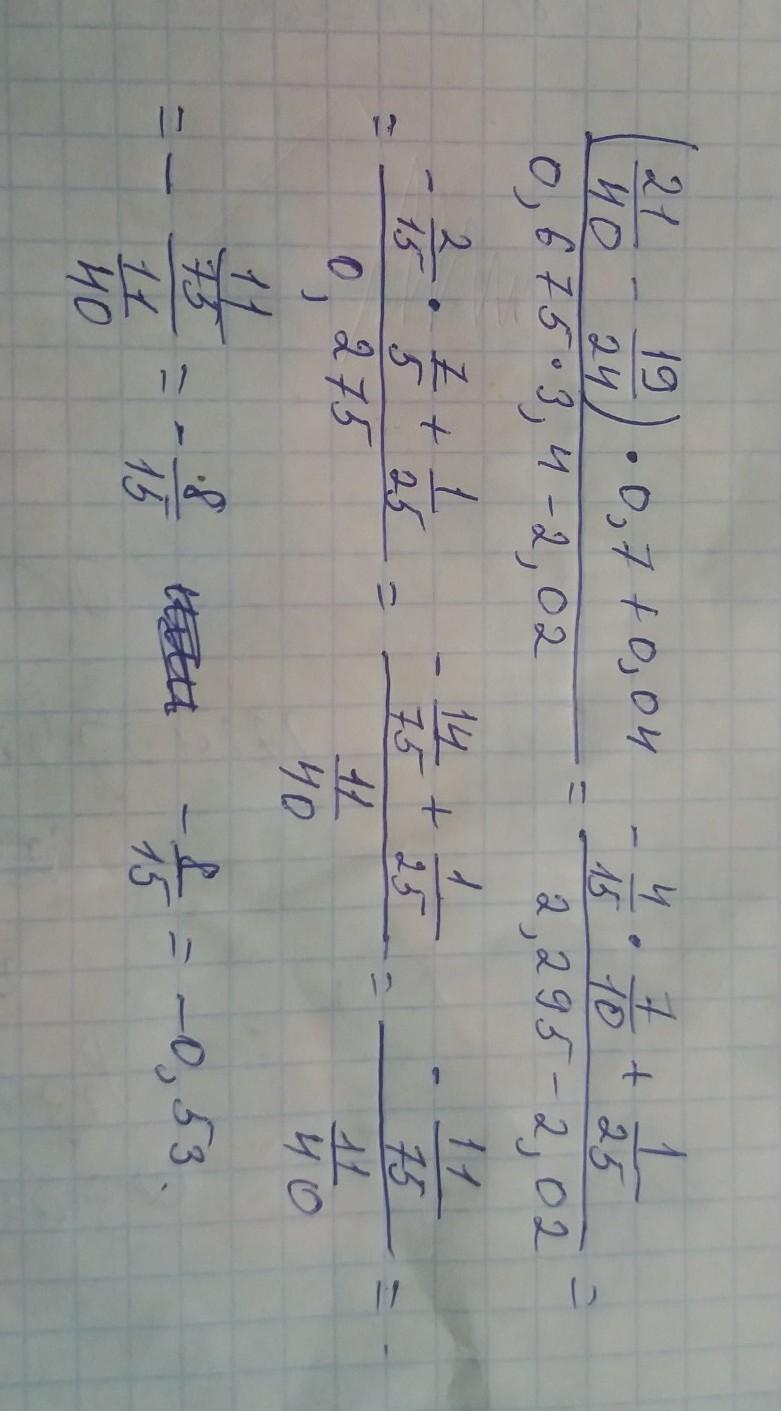 (21/40 - 19/24) · 0,7 + 0,04 / 0,675 · 3,4 - 2,02 = -4/15 · 7/10 + 1/25 / 2,295 - 2,02 =
= -2/15 · 7/5 + 1/25 / 0,275 = -14/75 + 1/25 / 11/40 = -11/75 / 11/40 = -
= - 11/75 / 11/40 = - 8/15 -8/15 = -0,53.